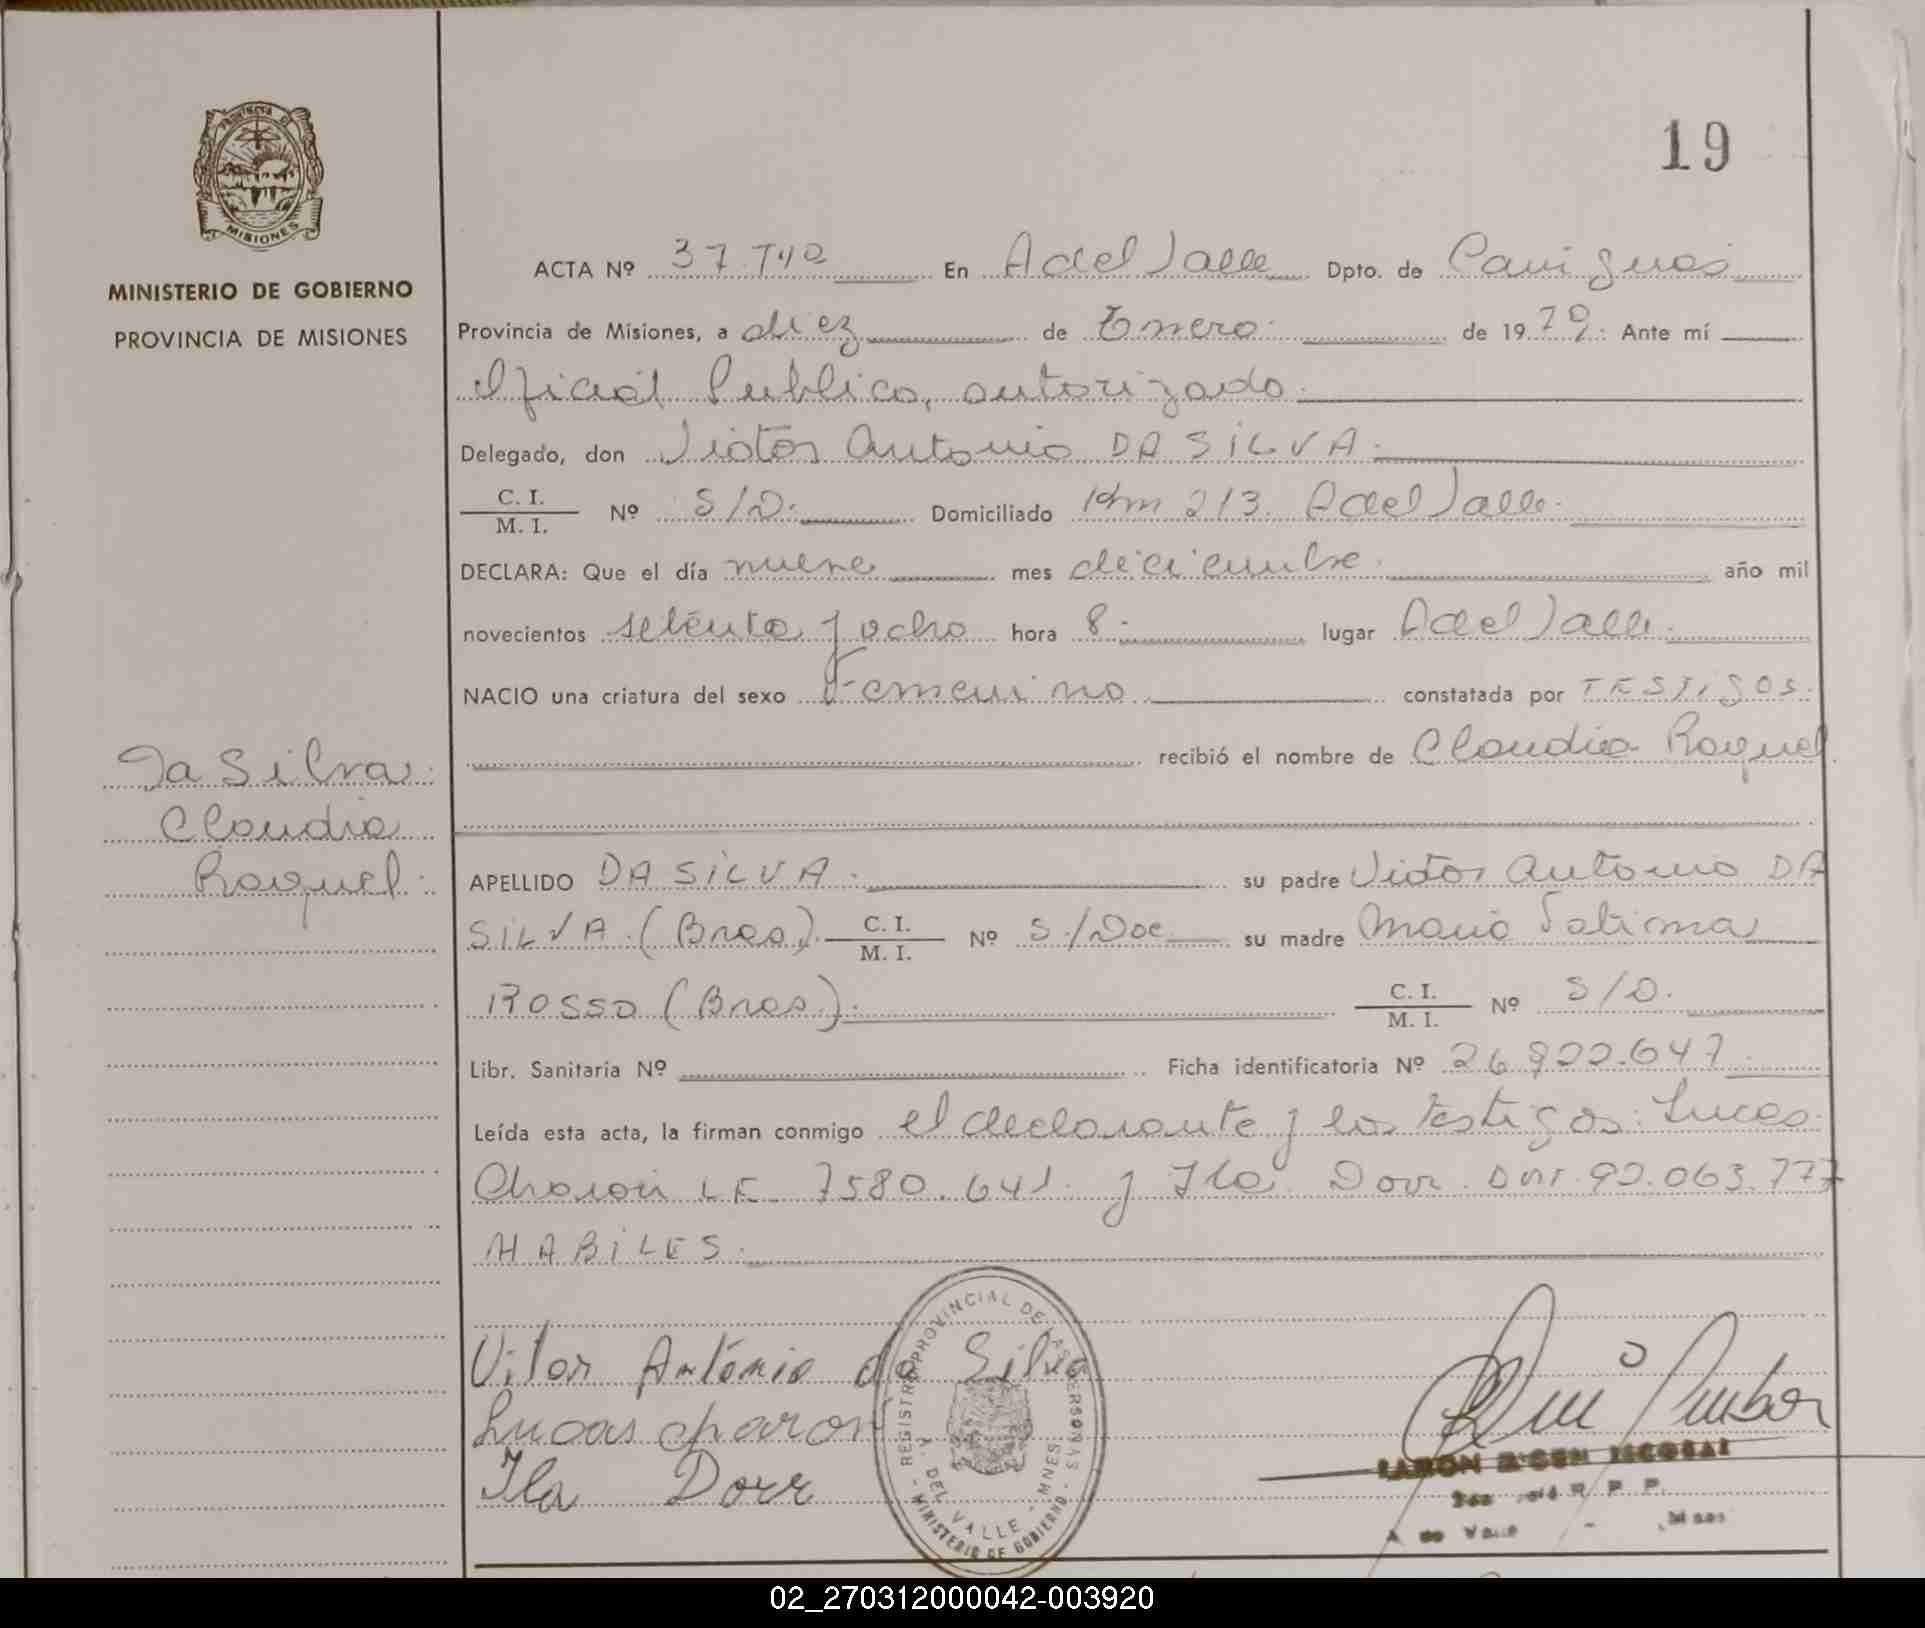 19
PROVINCIA DE
MISIONES
MINISTERIO DE GOBIERNO
PROVINCIA DE MISIONES
ACTA Nº 37. T¼2 En A del Valle Dpto. de Cainguás
Provincia de Misiones, a diez de Enero. de 1979: Ante mí
Oficial Publico, autorizado.
Delegado, don Victor Antonio DA SILVA.
C. I.
M. I.
Nº S/D. Domiciliado Km 213. A del Valle.
DECLARA: Que el día nueve mes diciembre. año mil
novecientos setenta y ocho hora 8. lugar A del Valle.
NACIO una criatura del sexo Femenino constatada por TESTIGOS.
recibió el nombre de Claudia Raquel
Da Silva.
Claudia
Raquel.
APELLIDO DA SILVA. su padre Victor Antonio DA
SILVA. (Bras). C. I.
M. I. Nº S/Doc su madre Maria Fatima
ROSSO (Bras). C. I.
M. I. Nº S/D.
Libr. Sanitaria Nº Ficha identificatoria Nº 26.922.647.
Leída esta acta, la firman conmigo el declarante y los testigos: Lucas
Charon LE 7580.641. y Ila Dorr. DNI. 92.063.777
HABILES.
Vitor Antônio da Silva
Lucas charon
Ila Dorr
REGISTRO PROVINCIAL DE LAS PERSONAS
A. DEL VALLE - MNES
- MINISTERIO DE GOBIERNO -
R P P.
02_270312000042-003920